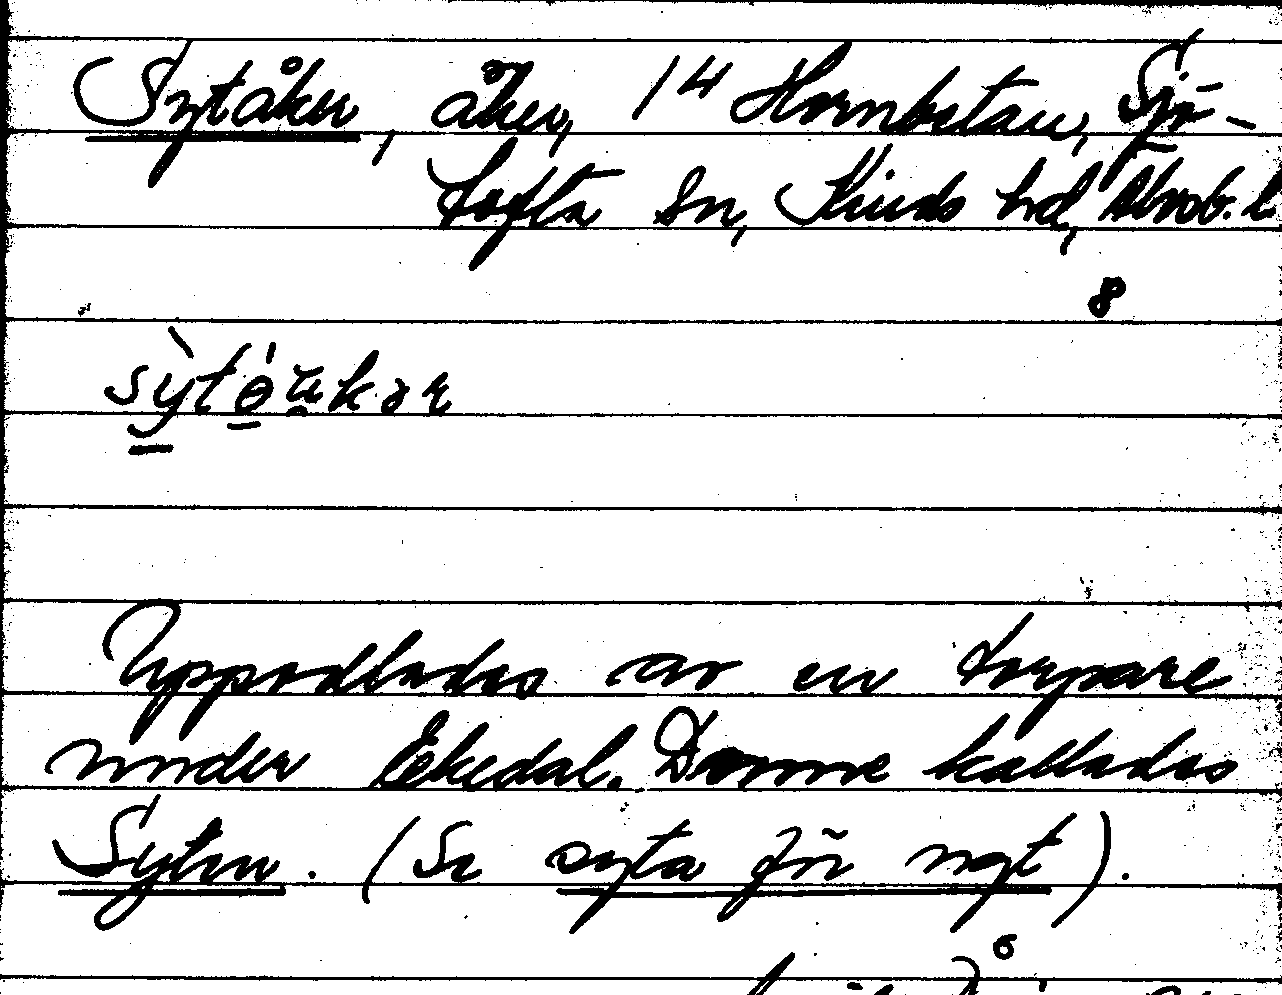 Sytåker, åker, 14 Hornbetan, Sjö-
tofta sn, Kinds hd, Älvsb. l.
8
Uppodlades av en torpare
under Ekedal. Denne kallades
Syten. (Se syta för ngt).